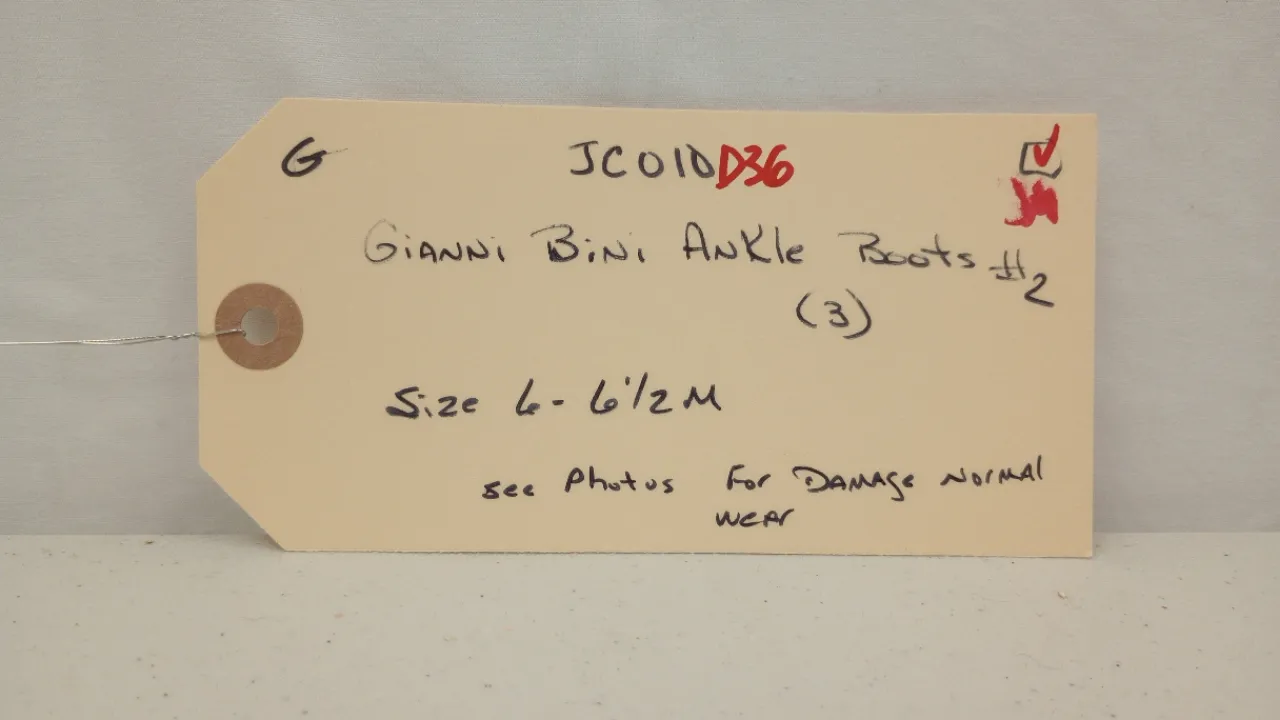 G JC010D36
Gianni Bini Ankle Boots #2
(3)
Size 6 - 6 1/2 M
see Photos For Damage Normal
wear